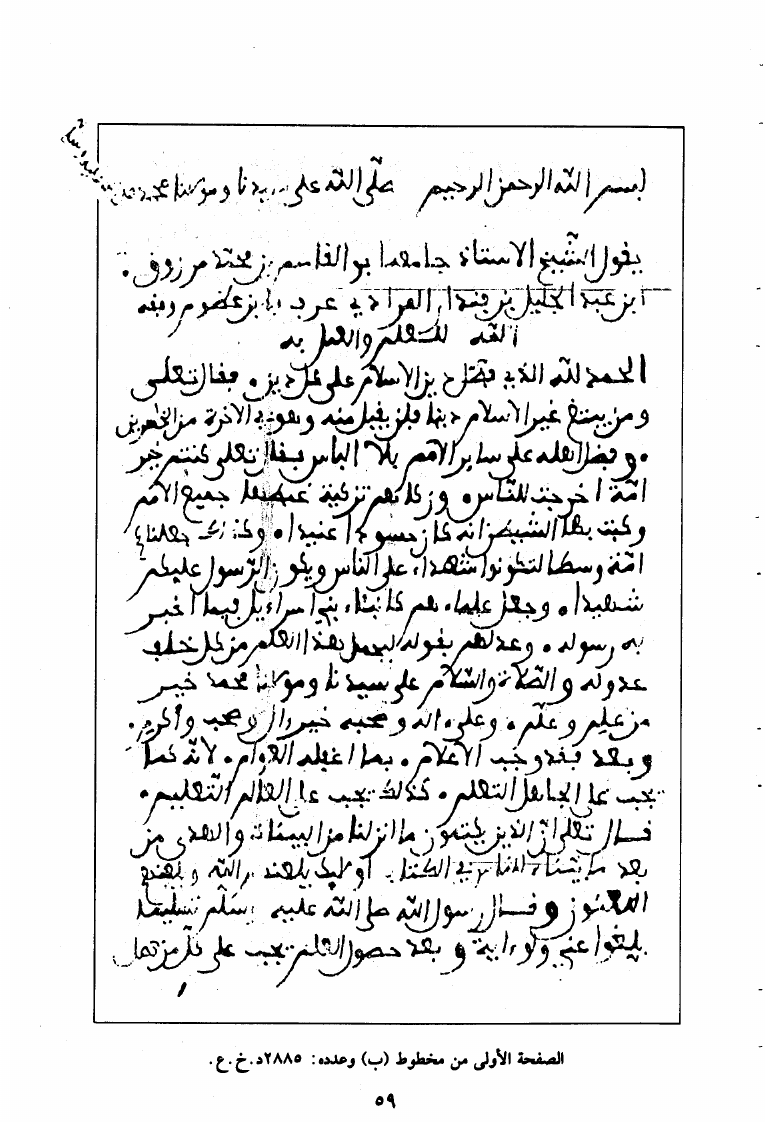 بسم الله الرحمن الرحيم صلى الله على سيدنا ومولانا محمد
يقول الشيخ الاستاذ جامعها بو القاسم بن محمد مرزوق
ابن عبد الجليل بن المرادي عرف بابن عظوم وفقه
الله للتعلم والعمل به
الحمد لله الذي فضل دين الاسلام على كل دين. فقال تعلى
ومن يبتغ غير الاسلام دينا فلن يقبل منه وهو في الاخرة من الخسرين
. وفضل اهله على ساير الامم بلا الباس فقال تعلى كنتم خير
امة اخرجت للناس. وزكاهم تزكية جميع الامم
وكبت بها الشيطن انه كان حسودا عنيدا. وكذلك جعلناكم
امة وسطا لتكونوا شهداء على الناس ويكون الرسول عليكم
شهيدا. وجعل علماءهم كانبياء بني اسراءيل فيما اخبر
به رسوله. وعدلهم بقوله ليحمل هذا العلم من كل خلف
عدوله والصلاة والسلام على سيدنا ومولانا محمد خير
من علم وعلم. وعلى اله وصحبه خير ال وصحب واكرم.
وبعد فقد وجب الاعلام. بما اغفله العوام. لانه كما
تجب على الجاهل التعلم. كذلك تجب على العالم التعليم.
قال تعلى ان الذين يكتمون ما انزلنا من البينات والهدى من
بعد ما بيناه للناس في الكتاب اوليك يلعنهم الله ويلعنهم
اللعنون وقال رسول الله صلى الله عليه وسلم تسليما
بلغوا عني ولو ءاية وبعد حصول العلم تجب على كل من
الصفحة الأولى من مخطوط (ب) وعدده: ٢٨٨٥د.خ.ع.
٥٩